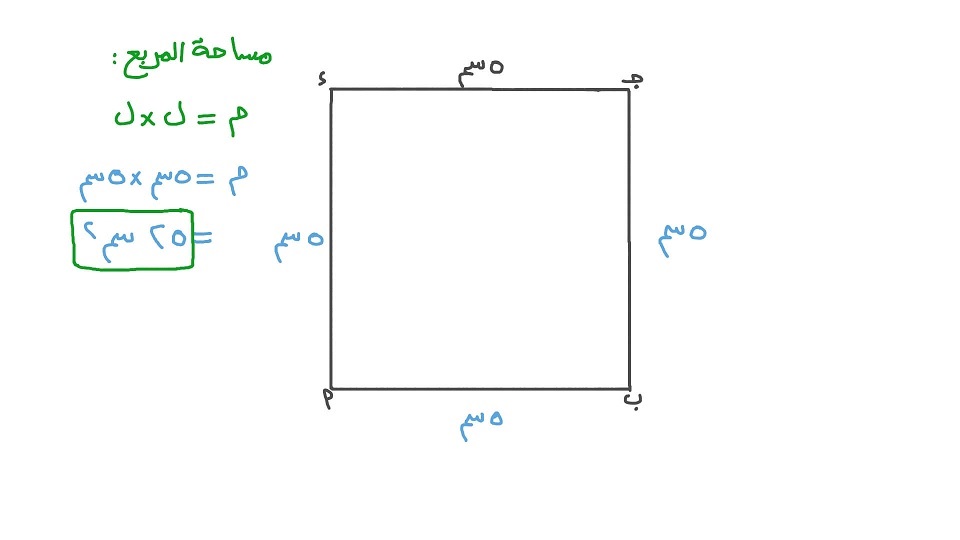 مساحة المربع :
م = ل × ل
م = ٥سم × ٥سم
= ٢٥ سم٢
ء
٥سم
جـ
٥سم
٥سم
م
٥سم
ب